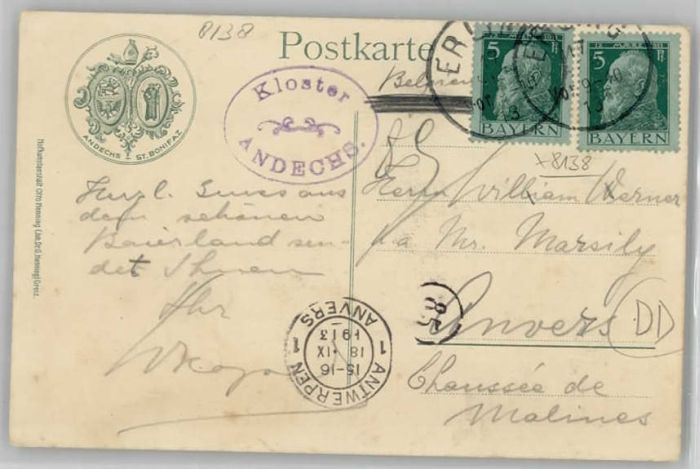 8138
Postkarte
Belgien
ANDECHS ST. BONIFAZ
Kloster
ANDECHS.
5 5
BAYERN BAYERN
8138
Herrn William Werner
p.a. Mr. Marsily
Anvers
DD
Chaussée de
Malines
Herzl. Gruss aus
dem schönen
Baierland sen-
det Ihnen
Ihr
1 ANTWERPEN 1
15-16
18 IX
1913
ANVERS